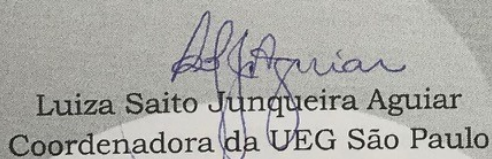 Luiza Saito Junqueira Aguiar
Coordenadora da UEG São Paulo